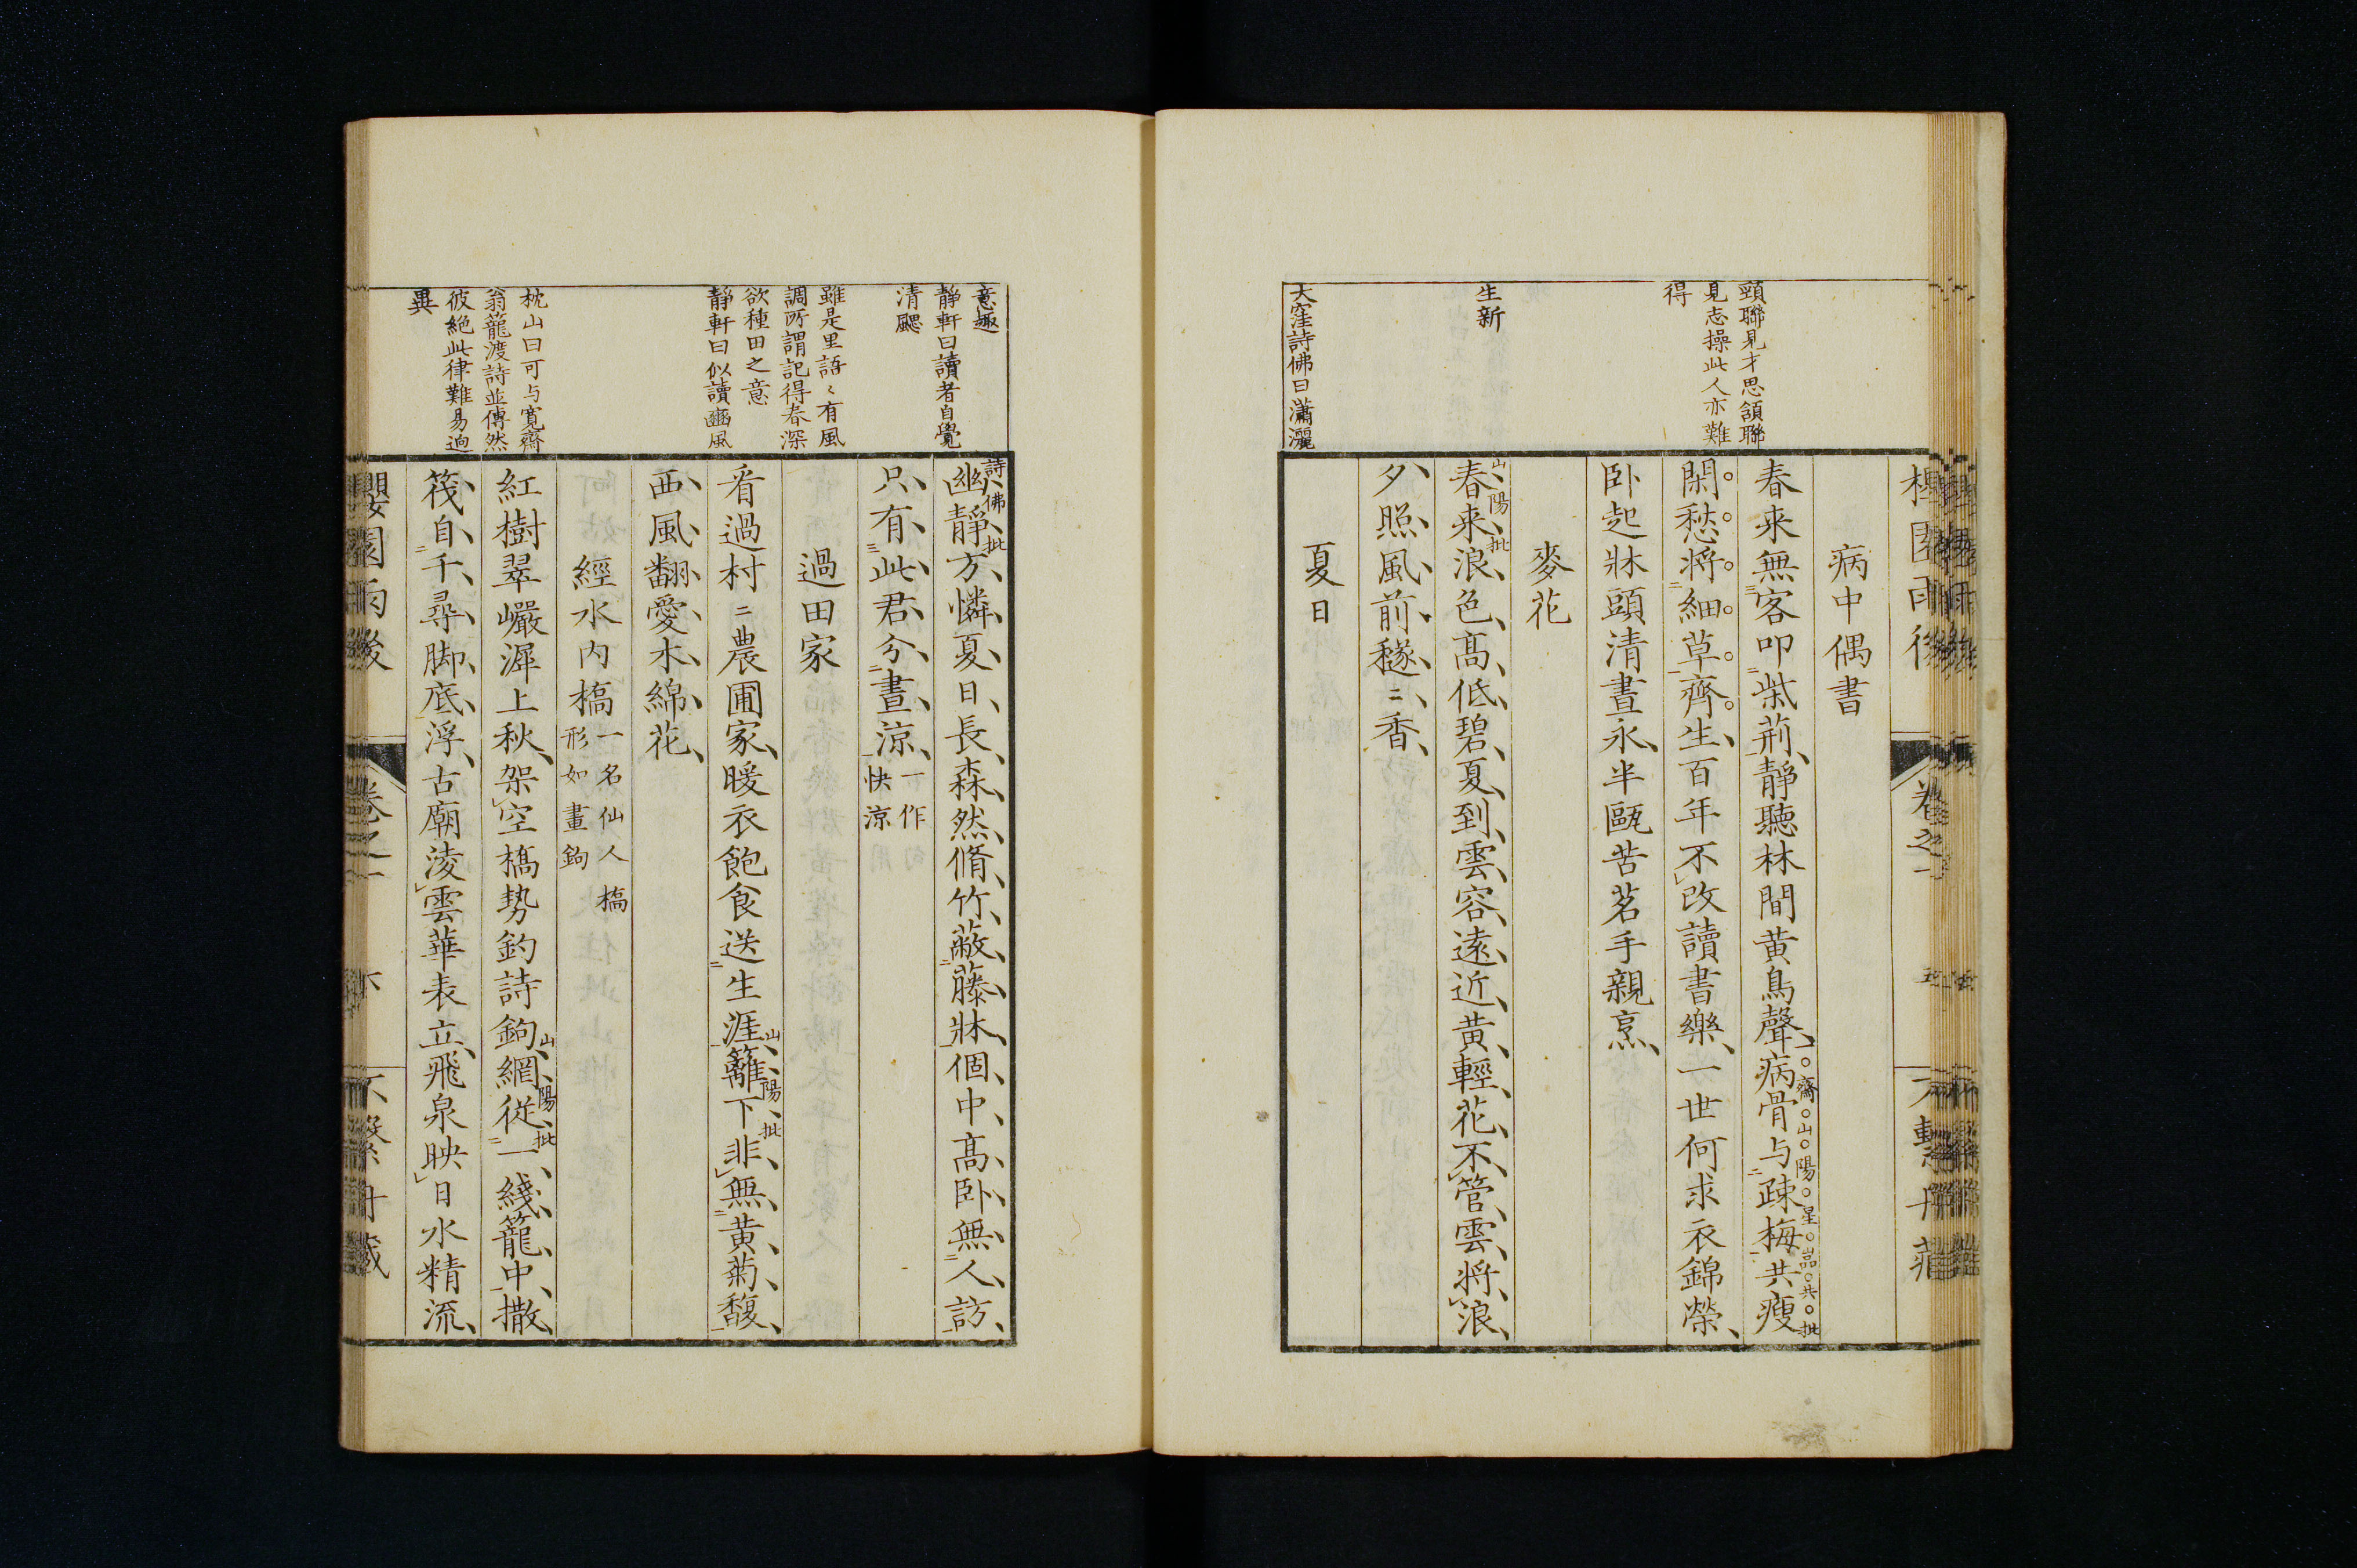 頸聯見才思頷聯
見志操此人亦難
得
生新
大窪詩佛曰瀟灑
病中偶書
春来無客叩柴荊靜聽林間黄鳥聲病骨与疎梅共瘦
齋山陽星巖共批
閑愁將細草齊生百年不改讀書樂一世何求衣錦榮
卧起牀頭清晝永半甌苦茗手親烹
麥花
山陽批
春来浪色髙低碧夏到雲容遠近黄輕花不管雲將浪
夕照風前穟〻香
夏日
意趣
靜軒曰讀者自覺
清颸
雖是里語〻有風
調所謂記得春深
欲種田之意
靜軒曰似讀豳風
枕山曰可与寛齋
翁籠渡詩並傳然
彼絶此律難易逈
異
詩佛批
幽靜方憐夏日長森然脩竹蔽藤牀個中髙卧無人訪
只有此君分晝涼
一作
快涼
過田家
看過村〻農圃家暖衣飽食送生涯籬下非無黄菊馥
山陽批
西風翻愛木綿花
經水内橋
一名仙人橋
形如畫鉤
紅樹翠巖漽上秋架空橋勢釣詩鉤綱従一綫籠中撒
山陽批
筏自千尋脚底浮古廟淩雲華表立飛泉映日水精流
卷之一